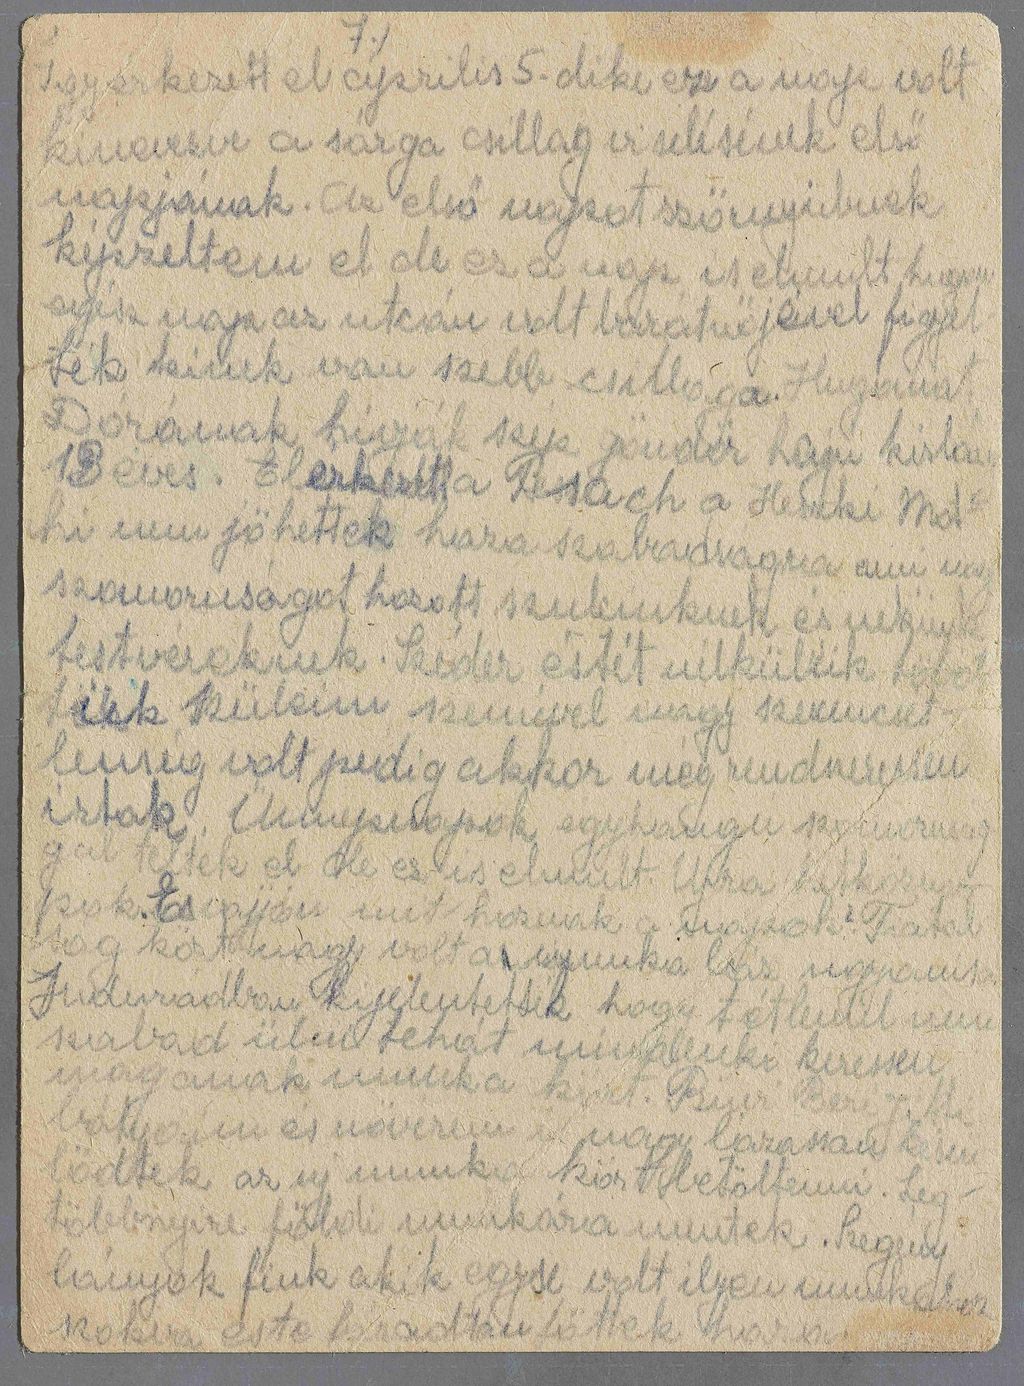 7./
Igy érkezett el április 5.-dike ez a nap volt
kinevezve a sárga csillag viselésének első
napjának. Az első napot szörnyűbnek
képzeltem el de ez a nap is elmult hugom
egész nap az utcán volt barátnőjével figyel-
ték kinek van szebb csillaga. Hugomat
Dórának hívják szép göndör haju kislány
13 éves. Elérkezett a Pesach a Henki Mot-
hi nem jöhettek haza szabadságra ami nagy
szomoruságot hozott szuleinknek és nekünk
testvéreknek. Széder estét nélkülük
tük Szüleim szemével nagy szerencsét-
lenség volt pedig akkor még rendszeresen
irtak. Ünnepnapok egyhangu szomoruság
gal teltek el de ez is elmult. Ujra hétközna-
pok. És vajjon mit hoznak a napok? Fiatal
ság közt nagy volt a munka láz ugyanis
Juderadban kijelentették hogy tétlenül nem
szabad ülni tehát mindenki keressen
magának munka kört.
bátyám és nővérem is nagy lázassan készü
lődtek az uj munka kört betölteni. Leg-
többnyire földi munkára mentek. Szegény
lányok fiuk akik egyse volt ilyen munkához
szokva este fáradtan jöttek haza.